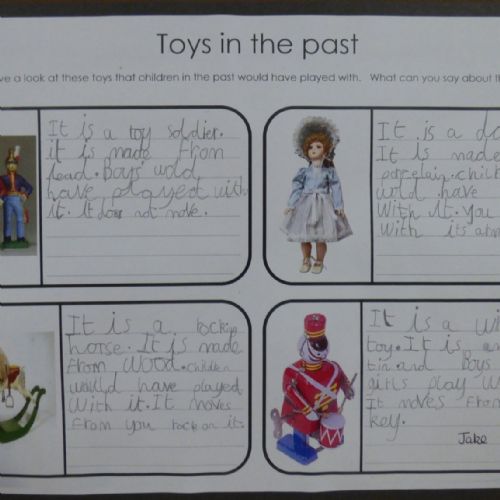 Toys in the past
ve a look at these toys that children in the past would have played with. What can you say about th
It is a toy soldier.
it is made from
lead. Boys wold
have played with
it. It does not move.
It is a do
It is made
porcelain. child
wold have
With it. You
With its a
It is a rocking
horse. It is made
From wood. children
would have played
With it. It moves
From you rock on it.
It is a wi
toy. It is an
tin and Boys
girls play w
It moves From
key.
Jake